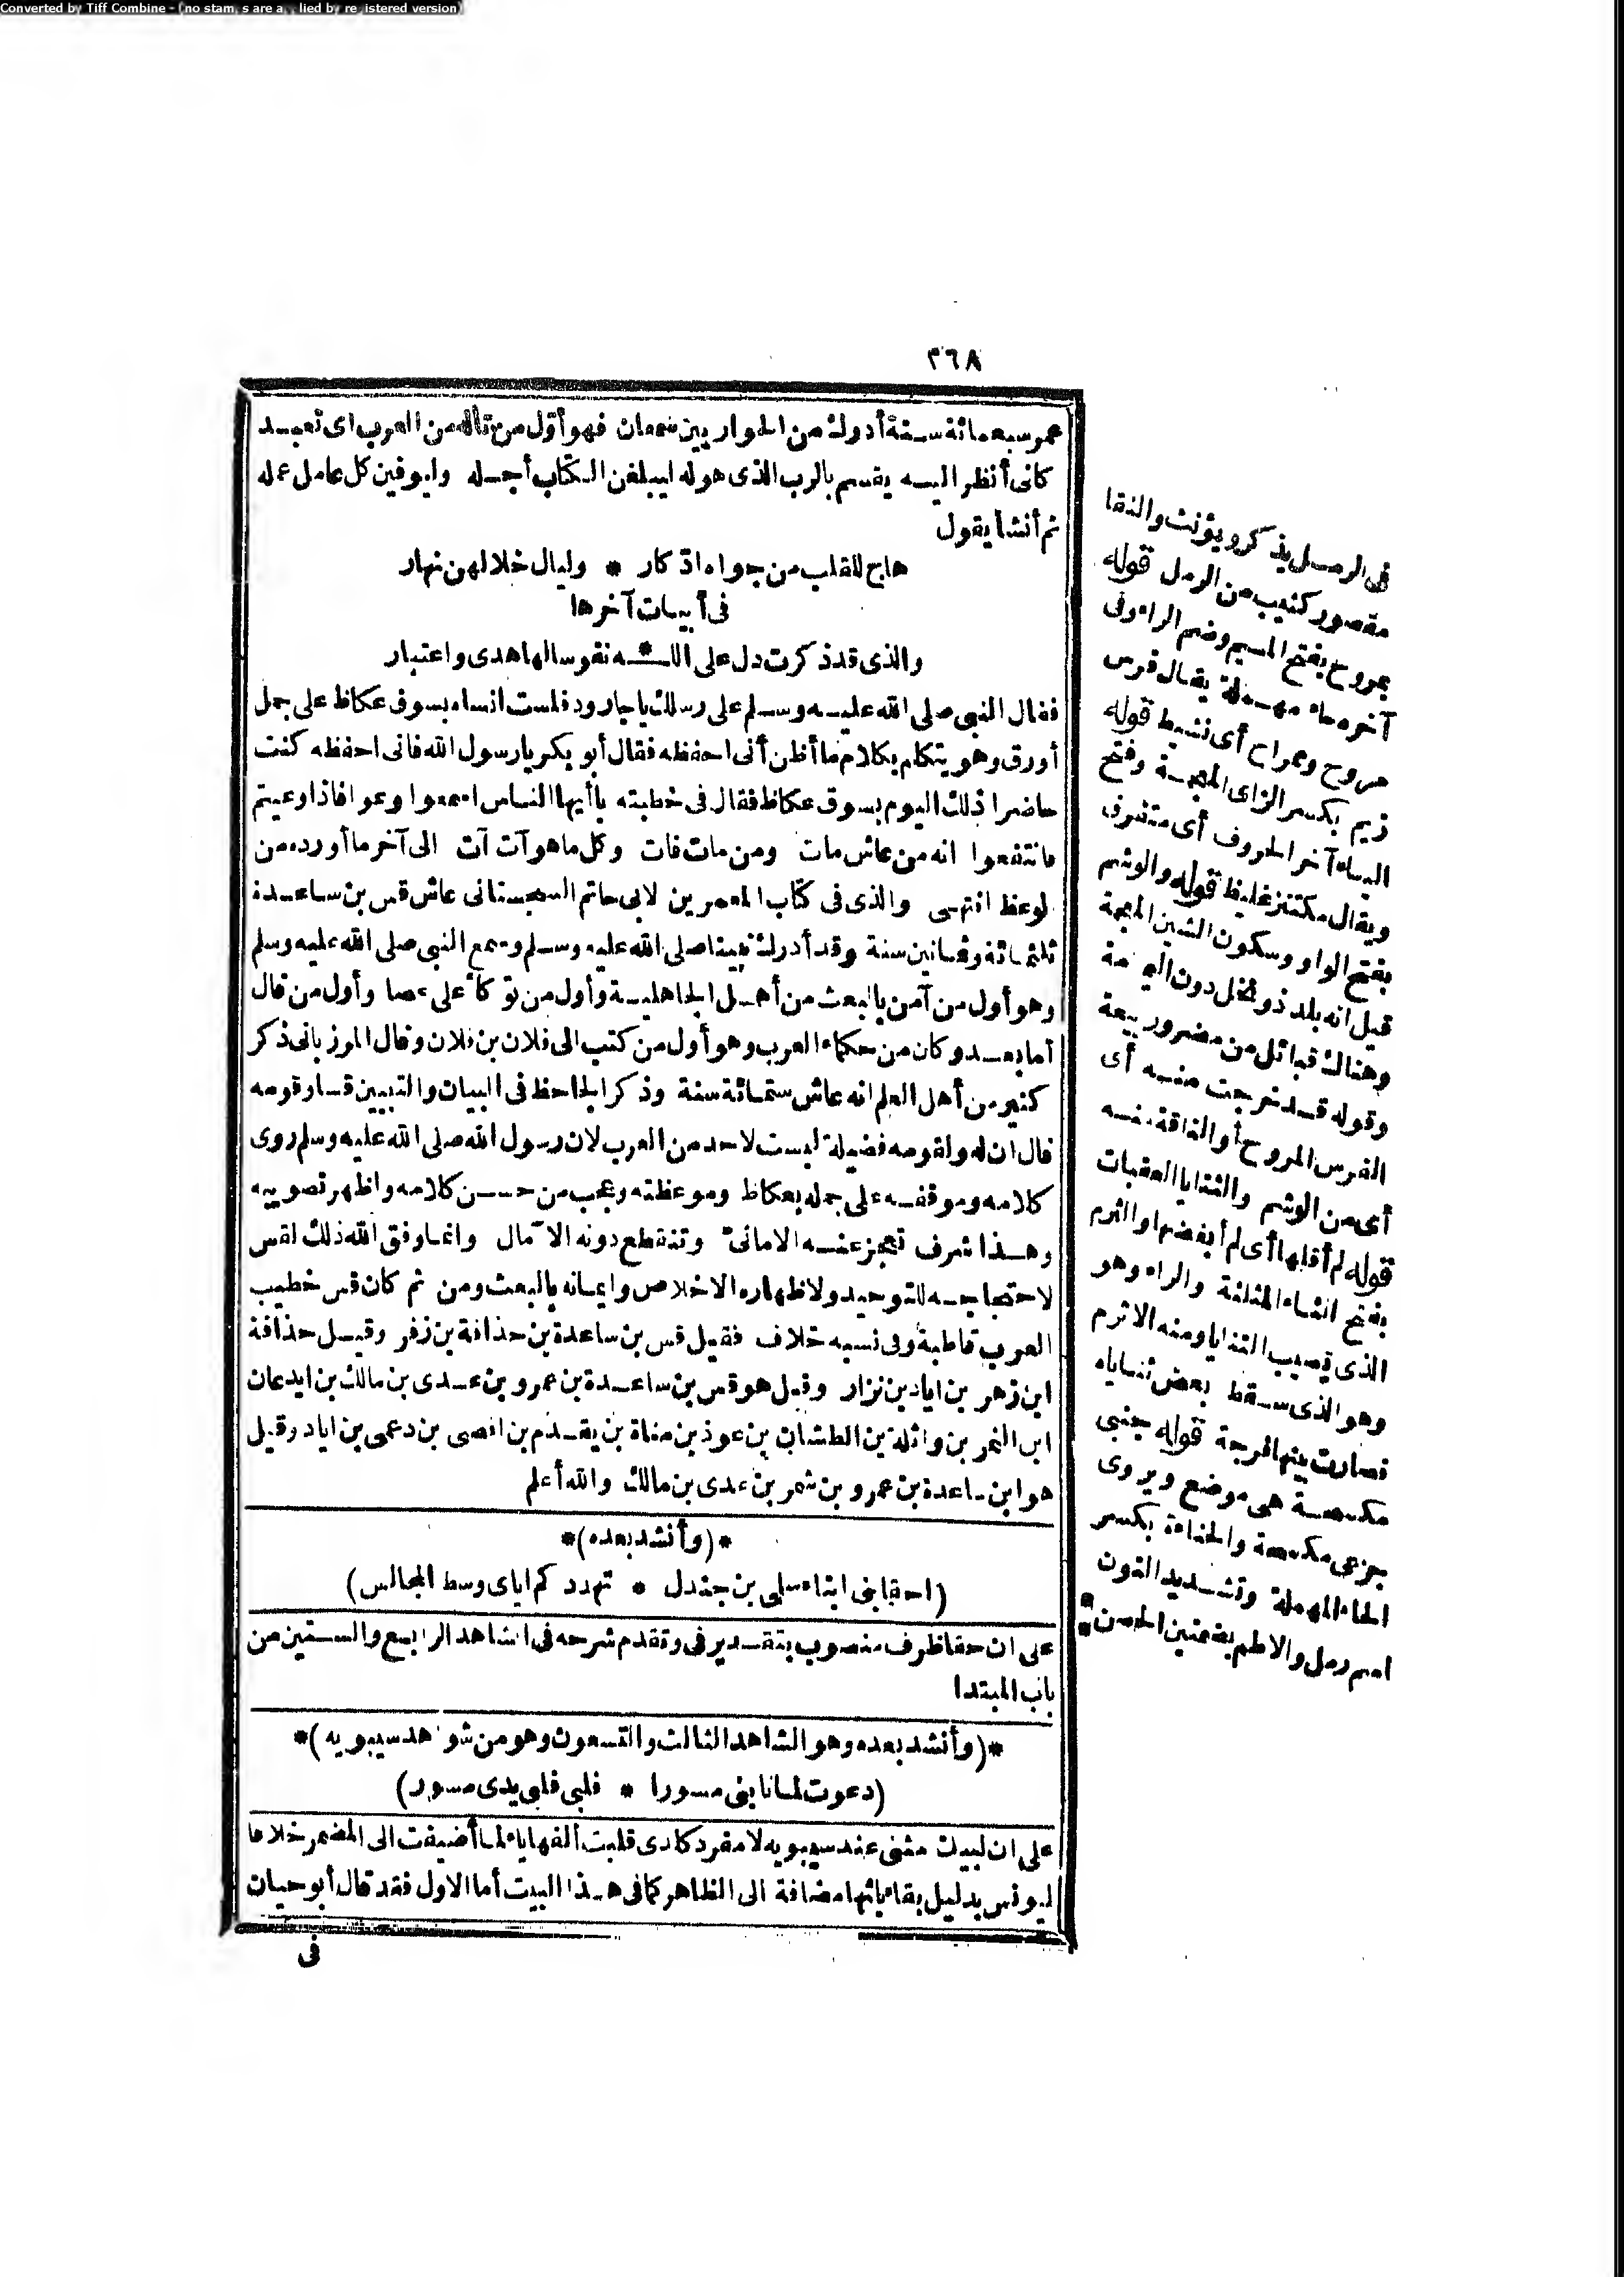 Converted by Tiff Combine - (no stamps are applied by registered version)
٢٦٨
عمر سبعمائة سنة أدرك من الحواريين سمعان فهو أوّل من تأله من العرب اى تعبد
كانى أنظر اليه يقسم بالرب الذى هو له ليبلغن الكتاب أجله وليوفين كل عامل عمله
ثم أنشأ يقول
هاج للقلب من جواه ادّكار * وليال خلالهن نهار
فى أبيات آخرها
والذى قد ذكرت دل على اللـ * ـه نفوسا لها هدى واعتبار
فقال النبى صلى الله عليه وسلم على رسلك يا جارود فلست انساه بسوق عكاظ على جمل
أورق وهو يتكلم بكلام ما أظن أنى احفظه فقال أبو بكر يا رسول الله فانى احفظه كنت
حاضرا ذلك اليوم بسوق عكاظ فقال فى خطبته يا أيها الناس اسمعوا وعوا فاذا وعيتم
فانتفعوا انه من عاش مات ومن مات فات وكل ما هو آت آت الى آخر ما أورده من
لوعظ انتهى والذى فى كتاب المعمرين لابى حاتم السجستانى عاش قس بن ساعدة
ثلثمائة وثمانين سنة وقد أدرك نبينا صلى الله عليه وسلم وسمع النبى صلى الله عليه وسلم
وهو أول من آمن بالبعث من أهل الجاهلية وأول من توكأ على عصا وأول من قال
أما بعد وكان من حكماء العرب وهو أول من كتب الى فلان بن فلان وقال المرزبانى ذكر
كثير من أهل العلم انه عاش ستمائة سنة وذكر الجاحظ فى البيان والتبيين قسا وقومه
قال ان له ولقومه فضيلة ليست لاحد من العرب لان رسول الله صلى الله عليه وسلم روى
كلامه وموقفه على جمله بعكاظ وموعظته وعجب من حسن كلامه واظهر تصويبه
وهذا شرف تعجز عنه الامانىّ وتنقطع دونه الآمال وانما وفق الله ذلك لقس
لاحتجاجه للتوحيد ولاظهاره الاخلاص وايمانه بالبعث ومن ثم كان قس خطيب
العرب قاطبة وفى نسبه خلاف فقيل قس بن ساعدة بن حذافة بن زفر وقيل حذافة
ابن زهر بن اياد بن نزار وقيل هو قس بن ساعدة بن عمرو بن عدى بن مالك بن ايدعان
ابن النمر بن واثلة بن الطشان بن عوذ بن مناة بن يقدم بن افصى بن دعمى بن اياد وقيل
هو ابن ساعدة بن عمرو بن شمر بن عدى بن مالك والله أعلم
*(وأنشد بعده)*
(احقا بنى ابناء سلمى بن جندل * تهددكم اياى وسط المجالس)
على ان حقا ظرف منصوب بتقدير فى وتقدم شرحه فى الشاهد الرابع والستين من
باب المبتدا
*(وأنشد بعده وهو الشاهد الثالث والتسعون وهو من شواهد سيبويه)*
(دعوت لما نابنى مسورا * فلبى فلبى يدى مسور)
على ان لبيك مثنى عند سيبويه لا مفرد كلدى قلبت ألفها ياء لما أضيفت الى المضمر خلافا
ليونس بدليل بقاء يائها مضافة الى الظاهر كما فى هذا البيت أما الاول فقد قال أبو حيان
فى
فى الرمل يذكر ويؤنث والنقا
مقصور كثيب من الرمل قوله
بمروح بفتح الميم وضم الراء وفى
آخره حاء مهملة يقال فرس
مروح وممراح أى نشيط قوله
زيم بكسر الزاى المعجمة وفتح
الياء آخر الحروف أى متفرق
ويقال مكتنز غليظ قوله والوشم
بفتح الواو وسكون الشين المعجمة
قيل انه بلد ذو نخل دون اليمامة
وهناك قبائل من مضر وربيعة
وقوله قد خرجت منه أى
الفرس المروح أو الناقة منه
أى من الوشم والثنايا العقبات
قوله لم أقلها أى لم أبغضها والثرم
بفتح الثاء المثلثة والراء وهو
الذى يصيب الثنايا ومنه الاثرم
وهو الذى سقط بعض ثناياه
فصارت بينها فرجة قوله بجنبى
مكسحة هى موضع ويروى
جزعى مكسحة والحناءة بكسر
الحاء المهملة وتشديد النون
اسم رمل والاطم بضمتين الحصن